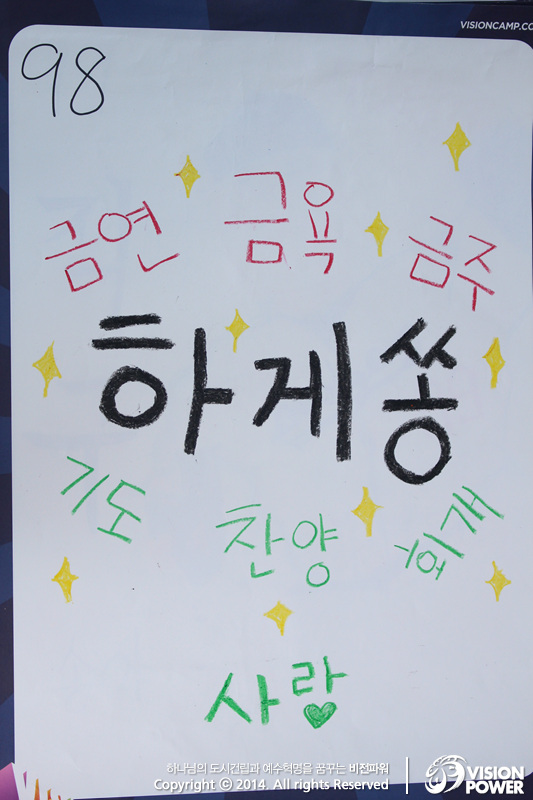 VISIONCAMP.CO
98
금연 금욕 금주
하게쏭
기도 찬양 회개
사랑
하나님의 도시건립과 예수혁명을 꿈꾸는 비전파워
Copyright © 2014. All rights Reserved
VISION
POWER